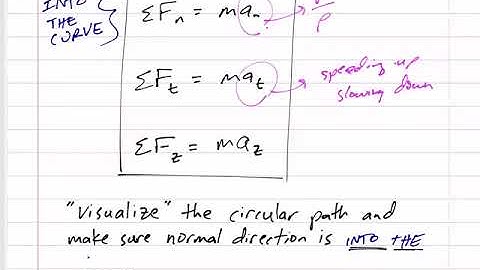 INTO
THE
CURVE
ΣFn = man
ρ
ΣFt = mat
speeding up
slowing down
ΣFz = maz
"visualize" the circular path and
make sure normal direction is INTO THE